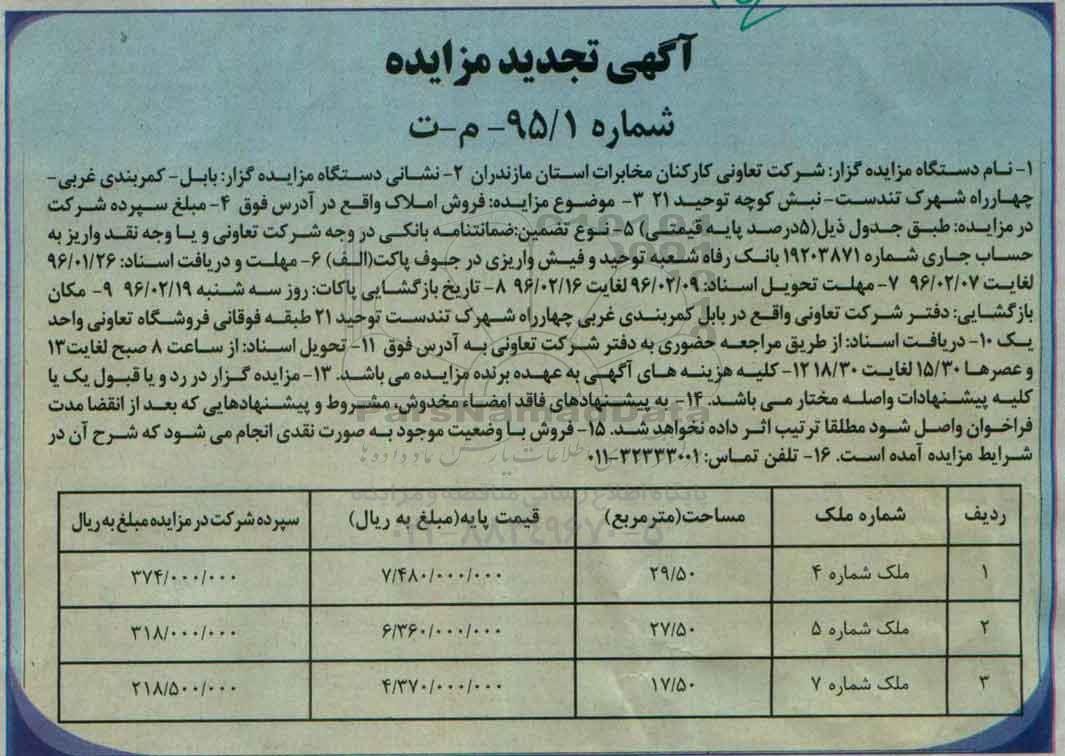 آگهی تجدید مزایده
شماره ۹۵/۱- م-ت
۱- نام دستگاه مزایده گزار: شرکت تعاونی کارکنان مخابرات استان مازندران ۲- نشانی دستگاه مزایده گزار: بابل- کمربندی غربی-
چهارراه شهرک تندست- نبش کوچه توحید ۲۱ ۳- موضوع مزایده: فروش املاک واقع در آدرس فوق ۴- مبلغ سپرده شرکت
در مزایده: طبق جدول ذیل(۵درصد پایه قیمتی) ۵- نوع تضمین:ضمانتنامه بانکی در وجه شرکت تعاونی و یا وجه نقد واریز به
حساب جاری شماره ۱۹۲۰۳۸۷۱ بانک رفاه شعبه توحید و فیش واریزی در جوف پاکت(الف) ۶- مهلت و دریافت اسناد: ۹۶/۰۱/۲۶
لغایت ۹۶/۰۲/۰۷ ۷- مهلت تحویل اسناد: ۹۶/۰۲/۰۹ لغایت ۹۶/۰۲/۱۶ ۸- تاریخ بازگشایی پاکات: روز سه شنبه ۹۶/۰۲/۱۹ ۹- مکان
بازگشایی: دفتر شرکت تعاونی واقع در بابل کمربندی غربی چهارراه شهرک تندست توحید ۲۱ طبقه فوقانی فروشگاه تعاونی واحد
یک ۱۰- دریافت اسناد: از طریق مراجعه حضوری به دفتر شرکت تعاونی به آدرس فوق ۱۱- تحویل اسناد: از ساعت ۸ صبح لغایت۱۳
و عصرها ۱۵/۳۰ لغایت ۱۸/۳۰ ۱۲- کلیه هزینه های آگهی به عهده برنده مزایده می باشد. ۱۳- مزایده گزار در رد و یا قبول یک یا
کلیه پیشنهادات واصله مختار می باشد. ۱۴- به پیشنهادهای فاقد امضاء مخدوش، مشروط و پیشنهادهایی که بعد از انقضا مدت
فراخوان واصل شود مطلقا ترتیب اثر داده نخواهد شد. ۱۵- فروش با وضعیت موجود به صورت نقدی انجام می شود که شرح آن در
شرایط مزایده آمده است. ۱۶- تلفن تماس: ۳۲۳۳۳۰۰۱-۰۱۱
ParsNamadData
پایگاه اطلاع رسانی مناقصه و مزایده
۰۲۱-۸۸۳۴۹۶۷۰-۵
ردیف شماره ملک مساحت(مترمربع) قیمت پایه(مبلغ به ریال) سپرده شرکت در مزایده مبلغ به ریال
۱ ملک شماره ۴ ۲۹/۵۰ ۷/۴۸۰/۰۰۰/۰۰۰ ۳۷۴/۰۰۰/۰۰۰
۲ ملک شماره ۵ ۲۷/۵۰ ۶/۳۶۰/۰۰۰/۰۰۰ ۳۱۸/۰۰۰/۰۰۰
۳ ملک شماره ۷ ۱۷/۵۰ ۴/۳۷۰/۰۰۰/۰۰۰ ۲۱۸/۵۰۰/۰۰۰